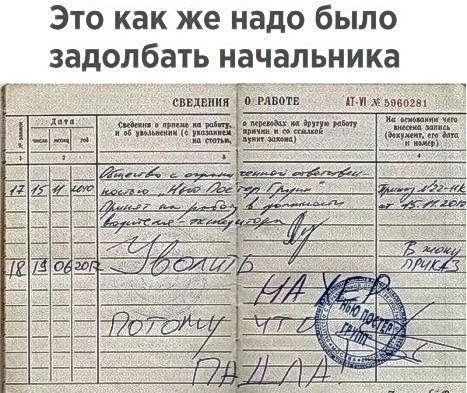 Это как же надо было
задолбать начальника
СВЕДЕНИЯ О РАБОТЕ АТ-VI № 5960281
№ записи
Дата
число месяц год
Сведения о приеме на работу, о переводах на другую работу
и об увольнении (с указанием причин и со ссылкой
на статью, пункт закона)
На основании чего
внесена запись
(документ, его дата
и номер)
1 2 3 4
Общество с ограниченной ответствен-
17 15 11 2010 ностью "Нью Постер Групп" Приказ №22-НК
Принят на работу в должности от 15.11.2010
водителя-экспедитора
18 19 06 2017 УВОЛИТЬ В жопу
ПРИКАЗ
НА ХЕР
ПОТОМУ ЧТО
НЬЮ ПОСТЕР
ГРУПП
ПАДЛА!